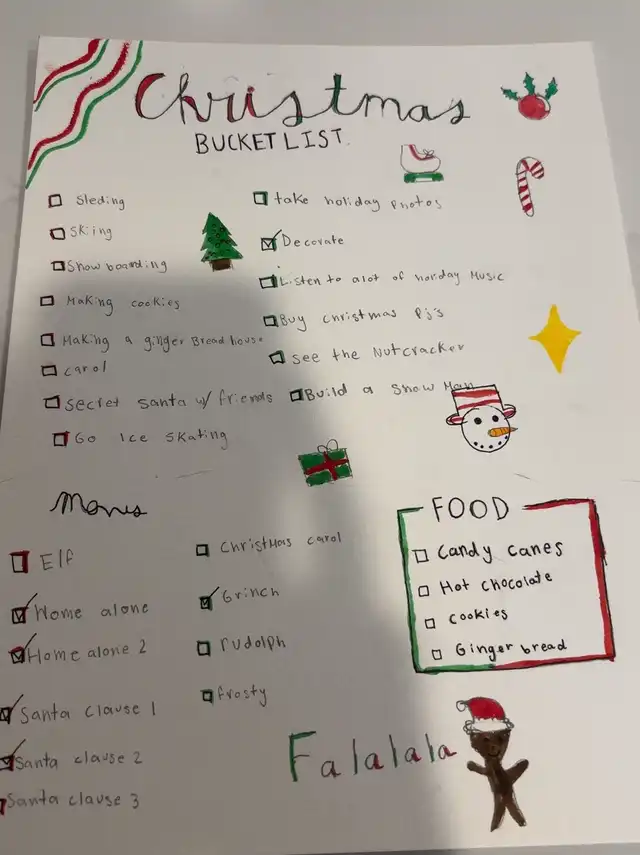 Christmas
BUCKET LIST
Sleding
Skiing
Snow boarding
Making cookies
Making a ginger Bread house
carol
secret santa w/ friends
Go Ice skating
take holiday photos
Decorate
Listen to alot of horday Music
Buy christmas Pj's
see the Nutcracker
Build a Snow Man
Moves
Elf
Home alone
Home alone 2
Santa clause 1
Santa clause 2
Santa clause 3
Christmas carol
Grinch
rudolph
frosty
FOOD
Candy canes
Hot chocolate
cookies
Ginger bread
Falalala